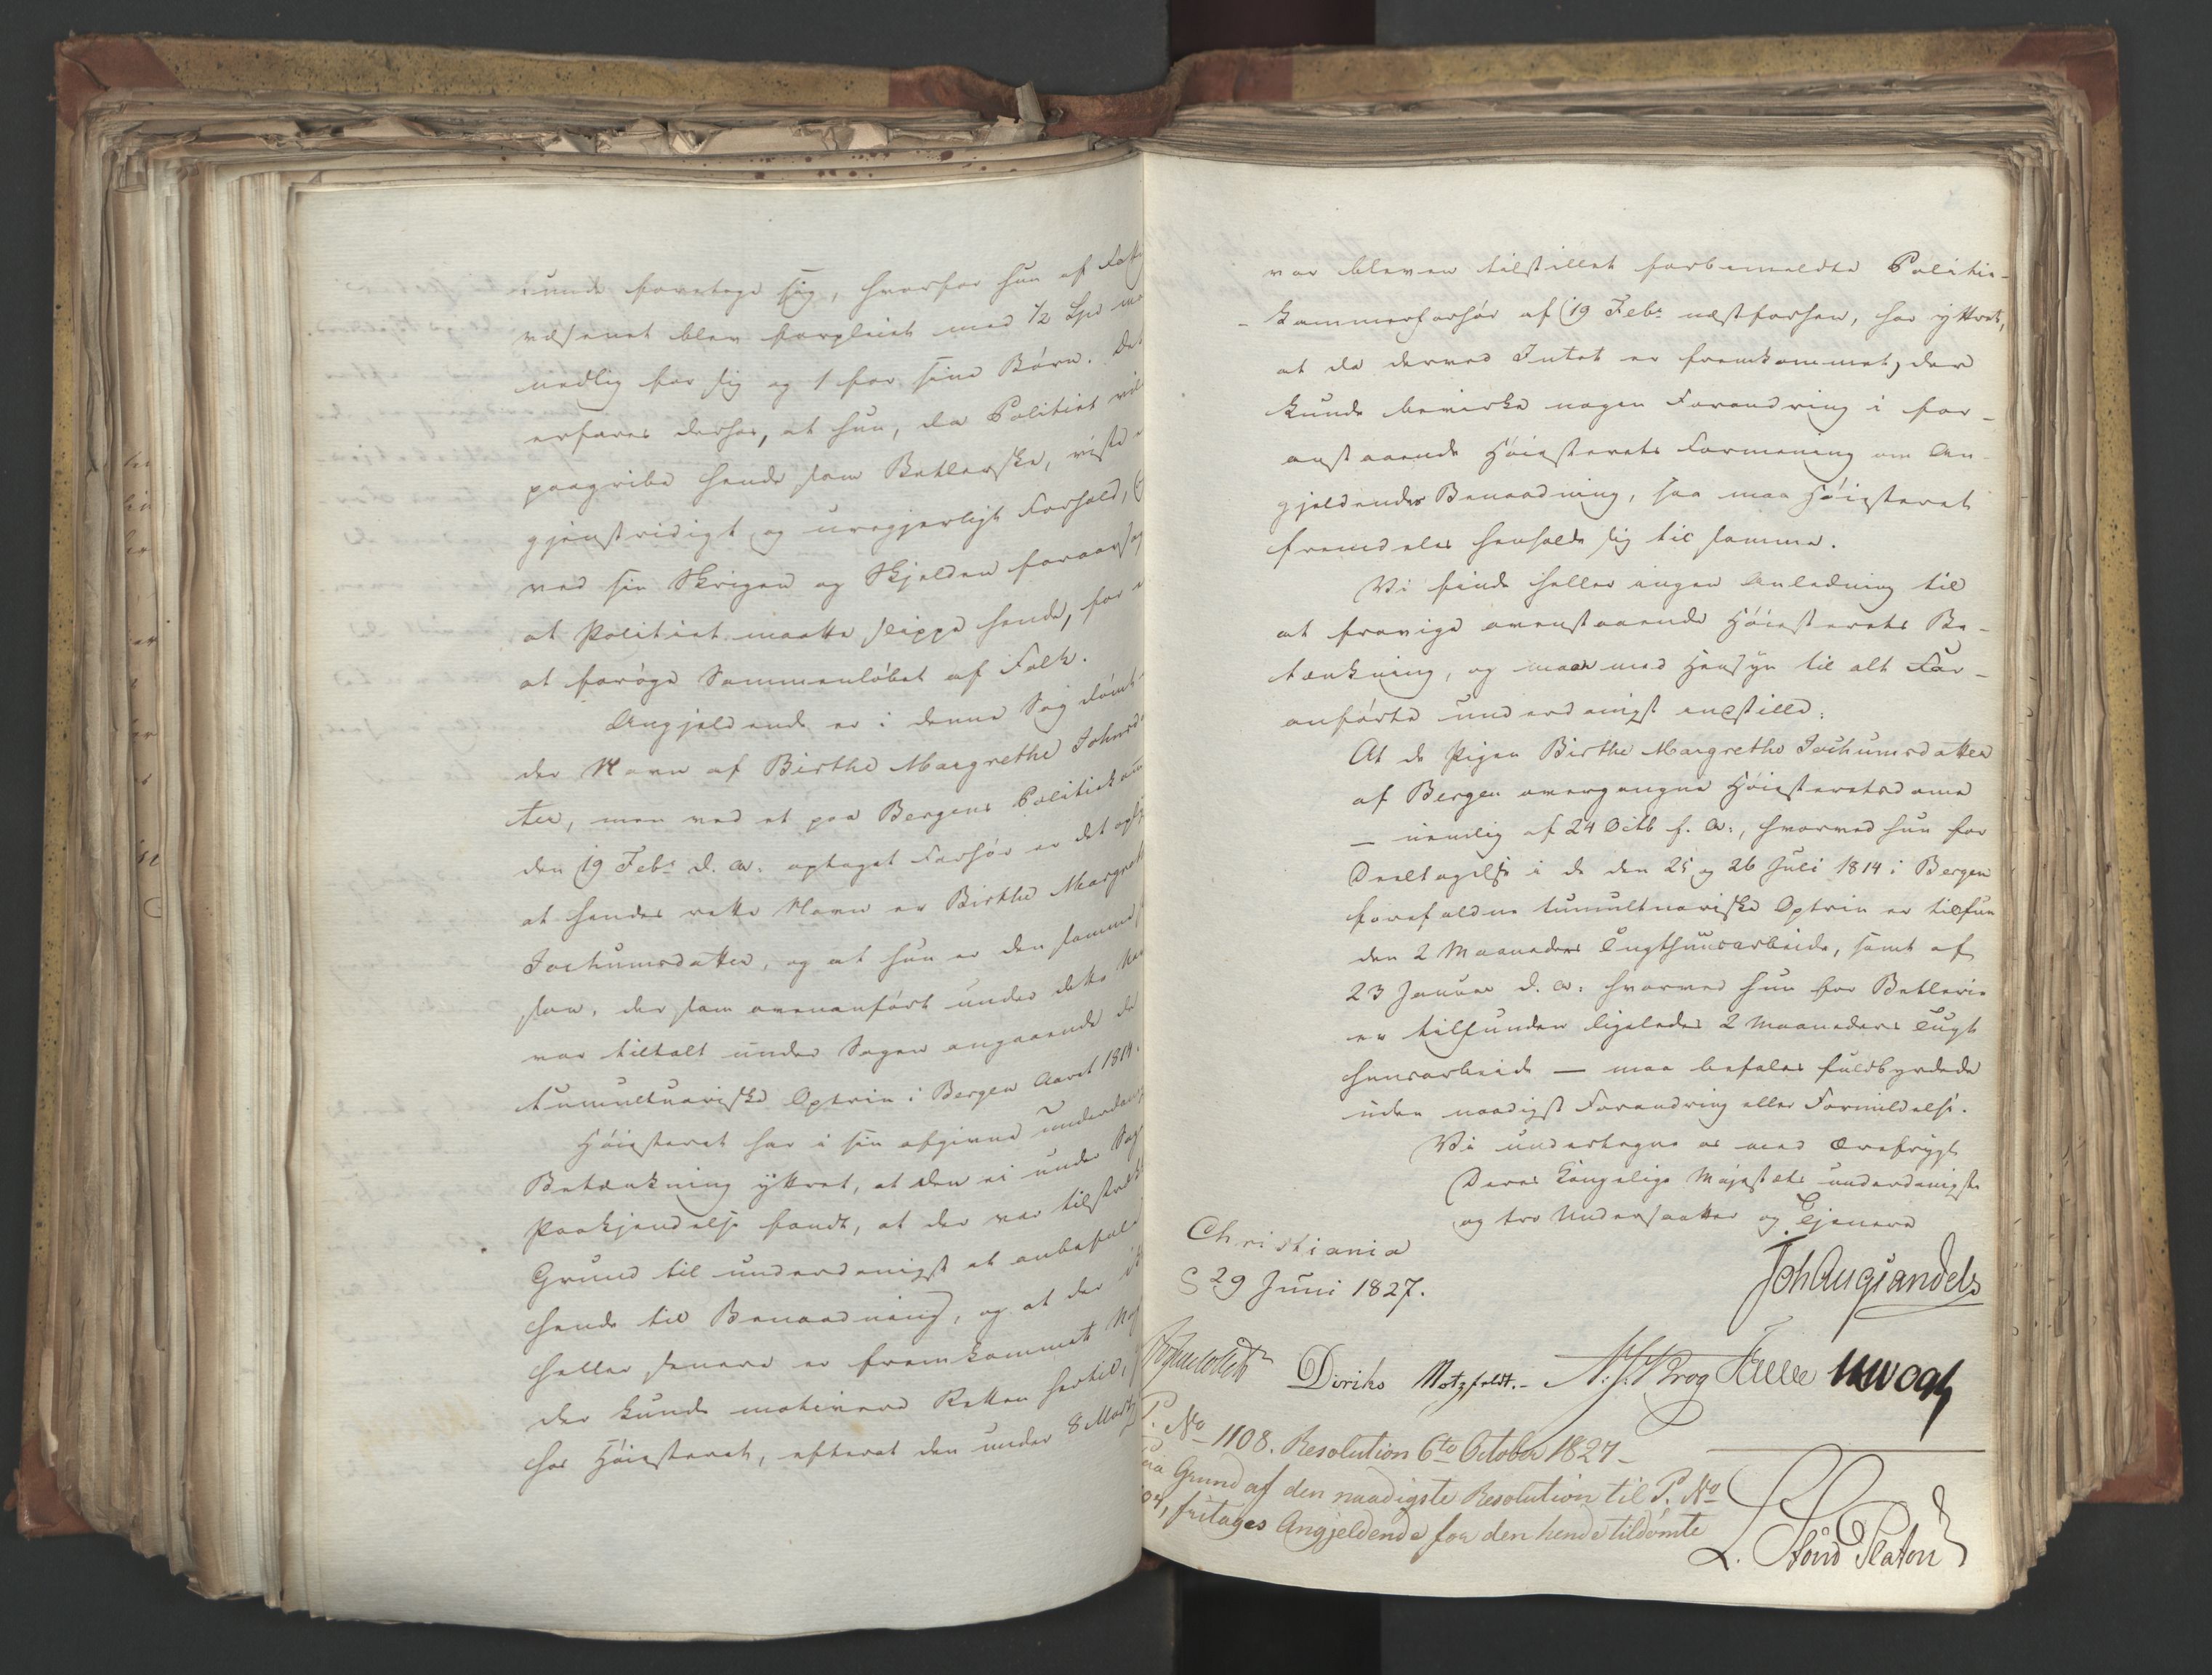 kunde foretage sig, hvorfor hun af Fattig
væsenet blev forpleiet med ½ Spd maa
nedlig for sig og 1 for sine Børn. Det
erfares derhos, at hun, da Politiet vilde
paagribe hende som Betlerske, viste et
gjenstridigt og uregjerligt Forhold,
ved sin Skrigen og Skjelden foraarsagede
at Politiet maatte slippe hende, for ei
at forøge Sammenløbet af Folk.
Angjeldende er i denne Sag dømt un-
der Navn af Birthe Margrethe Johnsdat
ter, men ved et paa Bergens Politiekammer
den 19 Febr. d. A. optaget Forhør er det oplyst
at hendes rette Navn er Birthe Margrethe
Jochumsdatter, og at hun er den samme Per
son, der som ovenanført under dette Navn
var tiltalt under Sagen angaaende de
tumultuariske Optrin i Bergen Aaret 1814.
Høiesteret har i sin afgivne underdanige
Betænkning yttret, at den ei under Sagens
Paakjendelse fandt, at der var tilstrækkelig
Grund til underdanigst at anbefale
hende til Benaadning, og at der ikke
heller senere er fremkommet Noget
der kunde motivere Retten hertil,
har Høiesteret, efterat den under 8 Marts
var bleven tilstillet forbemeldte Politie-
- kammerforhør af 19 Febr. næstforhen, har yttret,
at da derved Intet er fremkommet, der
kunde bevirke nogen Forandring i for-
anstaaende Høiesterets Formening om An-
gjeldendes Benaadning, saa maa Høiesteret
fremdeles henholde sig til samme.
Vi finde heller ingen Anledning til
at fravige ovenstaaende Høiesterets Be-
tænkning, og maae med Hensyn til alt For-
anførte underdanigst indstille:
At de Pigen Birthe Margrethe Jochumsdatter
af Bergen overgangne Høiesteretsdomme
— nemlig af 24 Octb f. A., hvorved hun for
Deeltagelse i de den 25 og 26 Juli 1814 i Bergen
forefaldne tumultuariske Optrin er tilfun
den 2 Maaneders Tugthuusarbeide, samt af
23 Januar d. A. hvorved hun for Betlerie
er tilfunden ligeledes 2 Maaneders Tugt
huusarbeide — maa befales fuldbyrdede
uden naadigst Forandring eller Formildelse.
Vi undertegne os med Ærefrygt
Deres Kongelige Majestæts underdanigste
og tro Undersaatter og Tjenere
Christiania
d 29 Juni 1827.
JohAugSandels
Diriks Motzfeldt. N. J. Krog Fasting
P. No 1108. Resolution 6te October 1827 –
Paa Grund af den naadigste Resolution til P. No
fritages Angjeldende for den hende tildømte
L. Stoud Platou